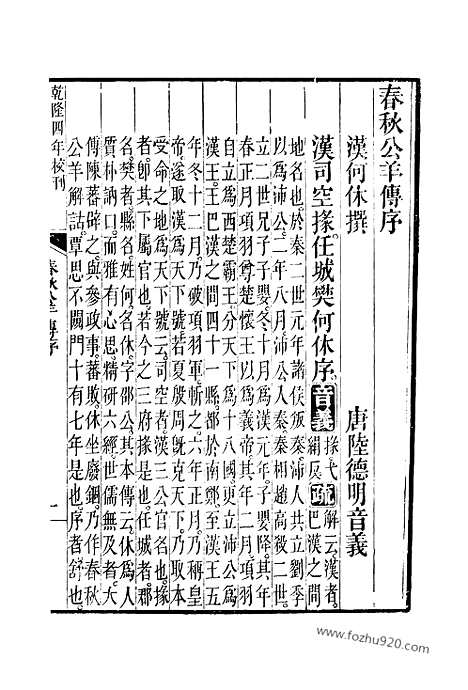 春秋公羊傳序
漢何休撰　唐陸德明音義
漢司空掾任城樊何休序 音義 掾弋絹反 疏 解云漢者巴漢之間
地名也於秦二世元年諸侯叛秦沛人共立劉季
以為沛公二年八月沛公入秦秦相趙高殺二世
立二世兄子子嬰冬十月為漢元年子嬰降其年
春正月項羽尊楚懷王以為義帝其年二月項羽
自立為西楚霸王分天下為十八國更立沛公為
漢王王巴漢之間四十一縣都於南鄭至漢王五
年冬十二月乃破項羽軍斬之六年正月乃稱皇
帝遂取漢為天下號若夏殷周既克天下乃取本
受命之地為天下號云司空者漢三公官名也掾
者即其下屬官也若今之三府掾是也任城者郡
名樊者縣名姓何名休字邵公其本傳云休為人
質朴訥口而雅有心思精研六經世儒無及者大
傅陳蕃辟之與參政事蕃敗休坐廢錮乃作春秋
公羊解詁覃思不闚門十有七年是也序者舒也
乾隆四年校刊
春秋公羊傳序
一
www.fozhu920.com